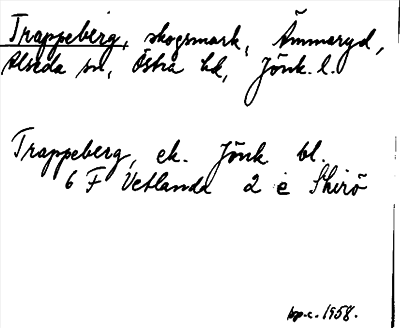 Trappeberg, skogsmark, Ämmaryd,
Alseda sn, Östra hd, Jönk. l.
Trappeberg, ek. Jönk bl.
6 F Vetlanda 2 e Skirö
bp.c. 1958.